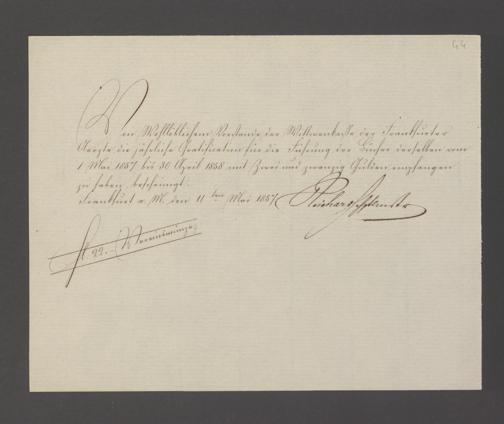 44
Von Wohllöblichem Vorstande der Wittwenkasse der Frankfurter
Aerzte die jährliche Gratification für die Führung der Bücher derselben vom
1 Mai 1857 bis 30 April 1858 mit Zwei und zwanzig Gulden empfangen
zu haben, bescheinigt
Frankfurt a. M. den 11 ten Mai 1857
fl 22. Vereinsmünze